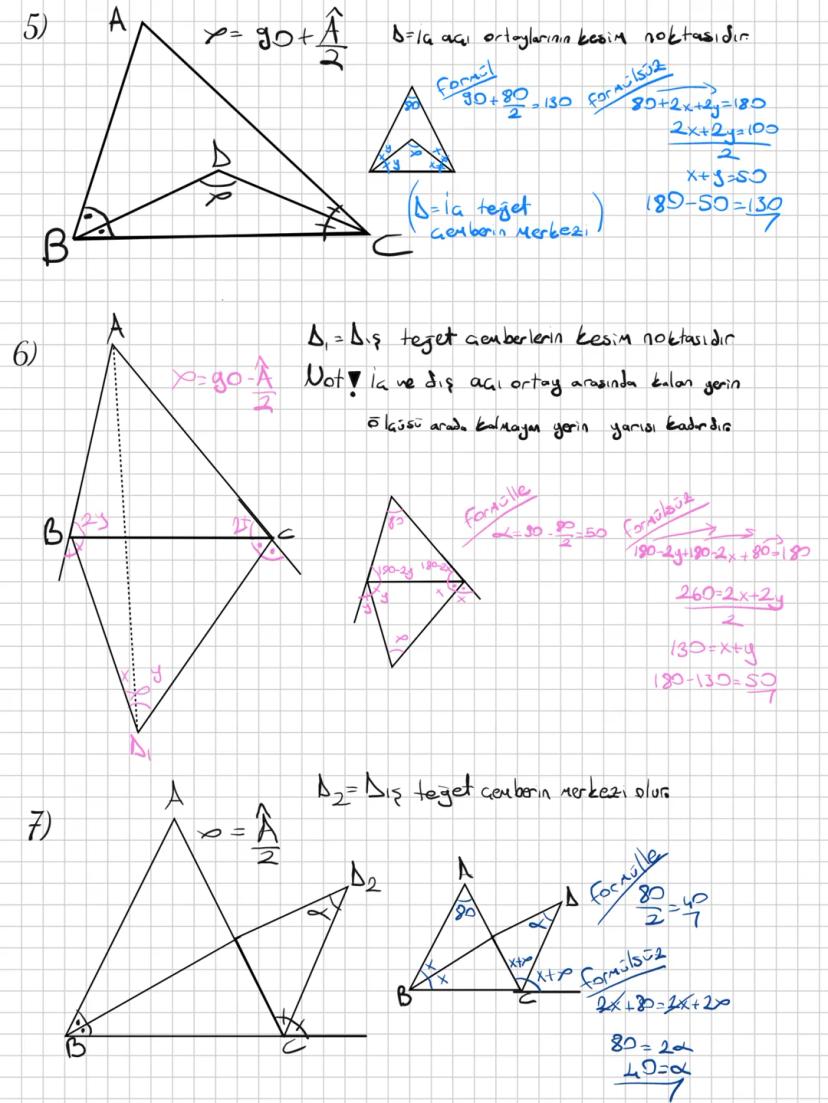 5)
A
α = 90 + Â/2
D = iç açı ortaylarının kesim noktasıdır
D
α
B
C
formül
90 + 80/2 = 130
formülsüz
80+2x+2y=180
2x+2y=100
2
x+y=50
180-50=130
80
y
y
α
x
x
(D = iç teğet
çemberin merkezi)
6)
A
α = 90 - Â/2
D₁ = Dış teğet çemberlerin kesim noktasıdır
Not! iç ve dış açı ortay arasında kalan yerin
ölçüsü arada kalmayan yerin yarısı kadardır
B
2y
C
x
y
α
D₁
formülle
α = 90 - 80/2 = 50
formülsüz
180-2y+180-2x+80=180
260=2x+2y
2
130=x+y
180-130=50
80
180-2y
180-2x
y
y
x
x
α
7)
A
α = Â/2
D₂ = Dış teğet çemberin merkezi olur.
D₂
α
B
C
A
80
D
α
x
x
x+α
x+α
B
C
formülle
80/2 = 40
formülsüz
2x+80=2x+2α
80=2α
40=α